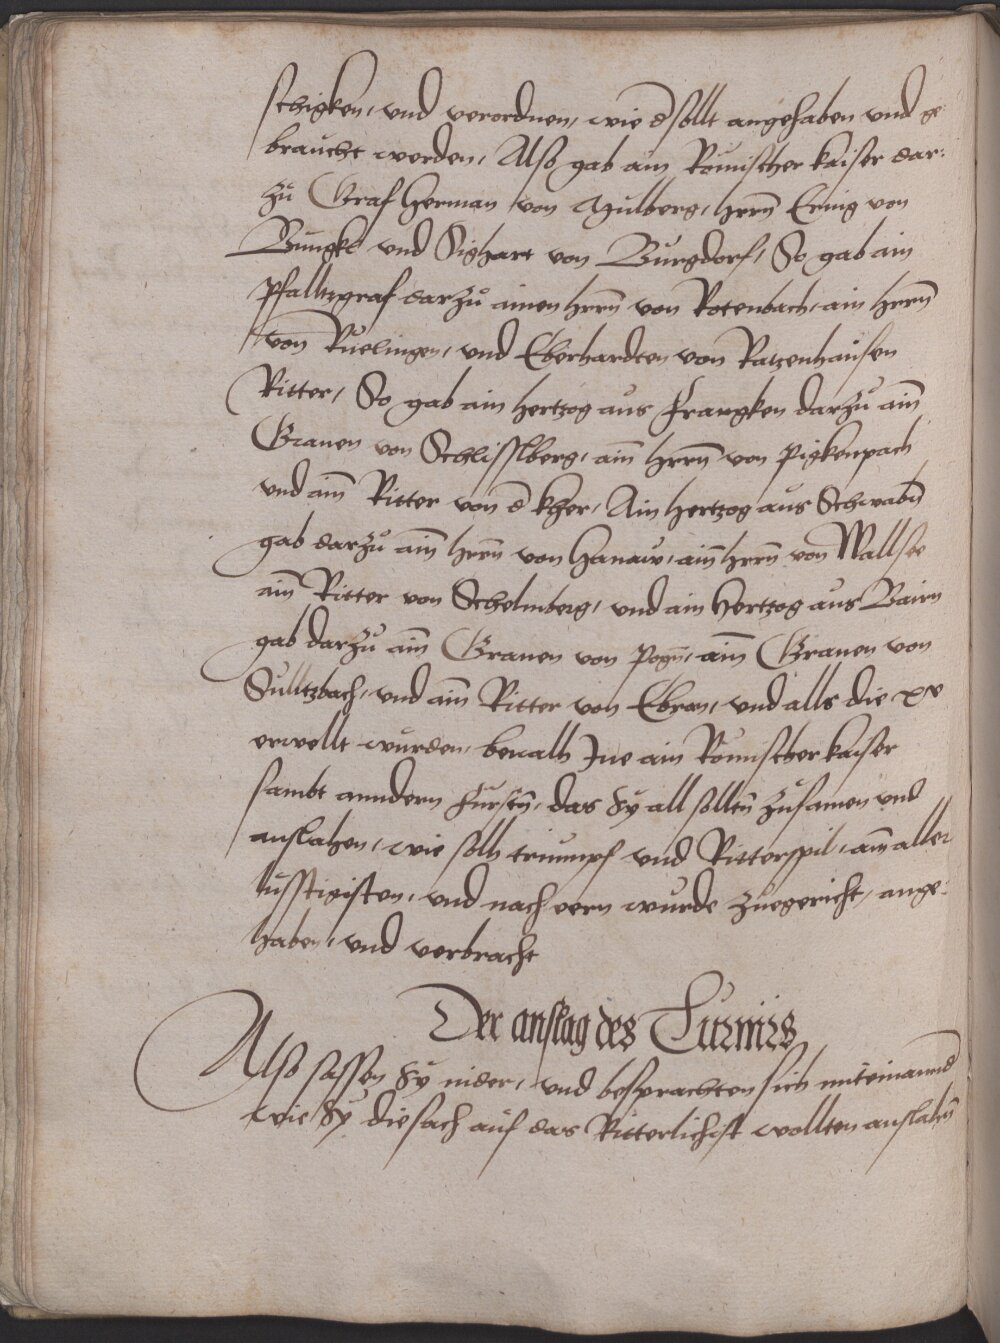 schigken, und verordnen, wie d sollt angehaben und ge
braucht werden, Also gab ain Römischer kaiser dar:
zu Graf Herman von Mülberg, hrrn Ernig von
Bungkl und Sighart von Burgdorf, So gab ain
Pfalltzgraf darzu ainen hrrn von Rotenbach, ain hrrn
von Ruelingen, und Eberhardten von Ratzenhausen
Ritter, So gab ain hertzog aus Frangken darzu ain
Grauen von Schlisslberg, ain hrrn von Pigkenpach
und ain Ritter von d kher, Ain hertzog aus Schwabn
gab darzu ain hrrn von Hanaw, ain hrrn von Wallsee
ain Ritter von Schelmberg, und ain Hertzog aus Bairn
gab darzu ain Grauen von Pogn, ain Grauen von
Sulltzbach, und ain Ritter von Ebran, und alls die xv
erwellt wurden, beualh Jne ain Römischer kaiser
sambt anndern Fürstn, das Sy all solltn zusamen und
anslahen, wie solh triumpf und Ritterspil, am aller
lusstigisten, und nach eern wurde zuegericht, ange:
haben, und verbracht
Der anslag des Turnirs
Also sassen Sy nider, und besprachten sich miteinannd
wie Sy die sach auf das Ritterlichist wollten anslahn